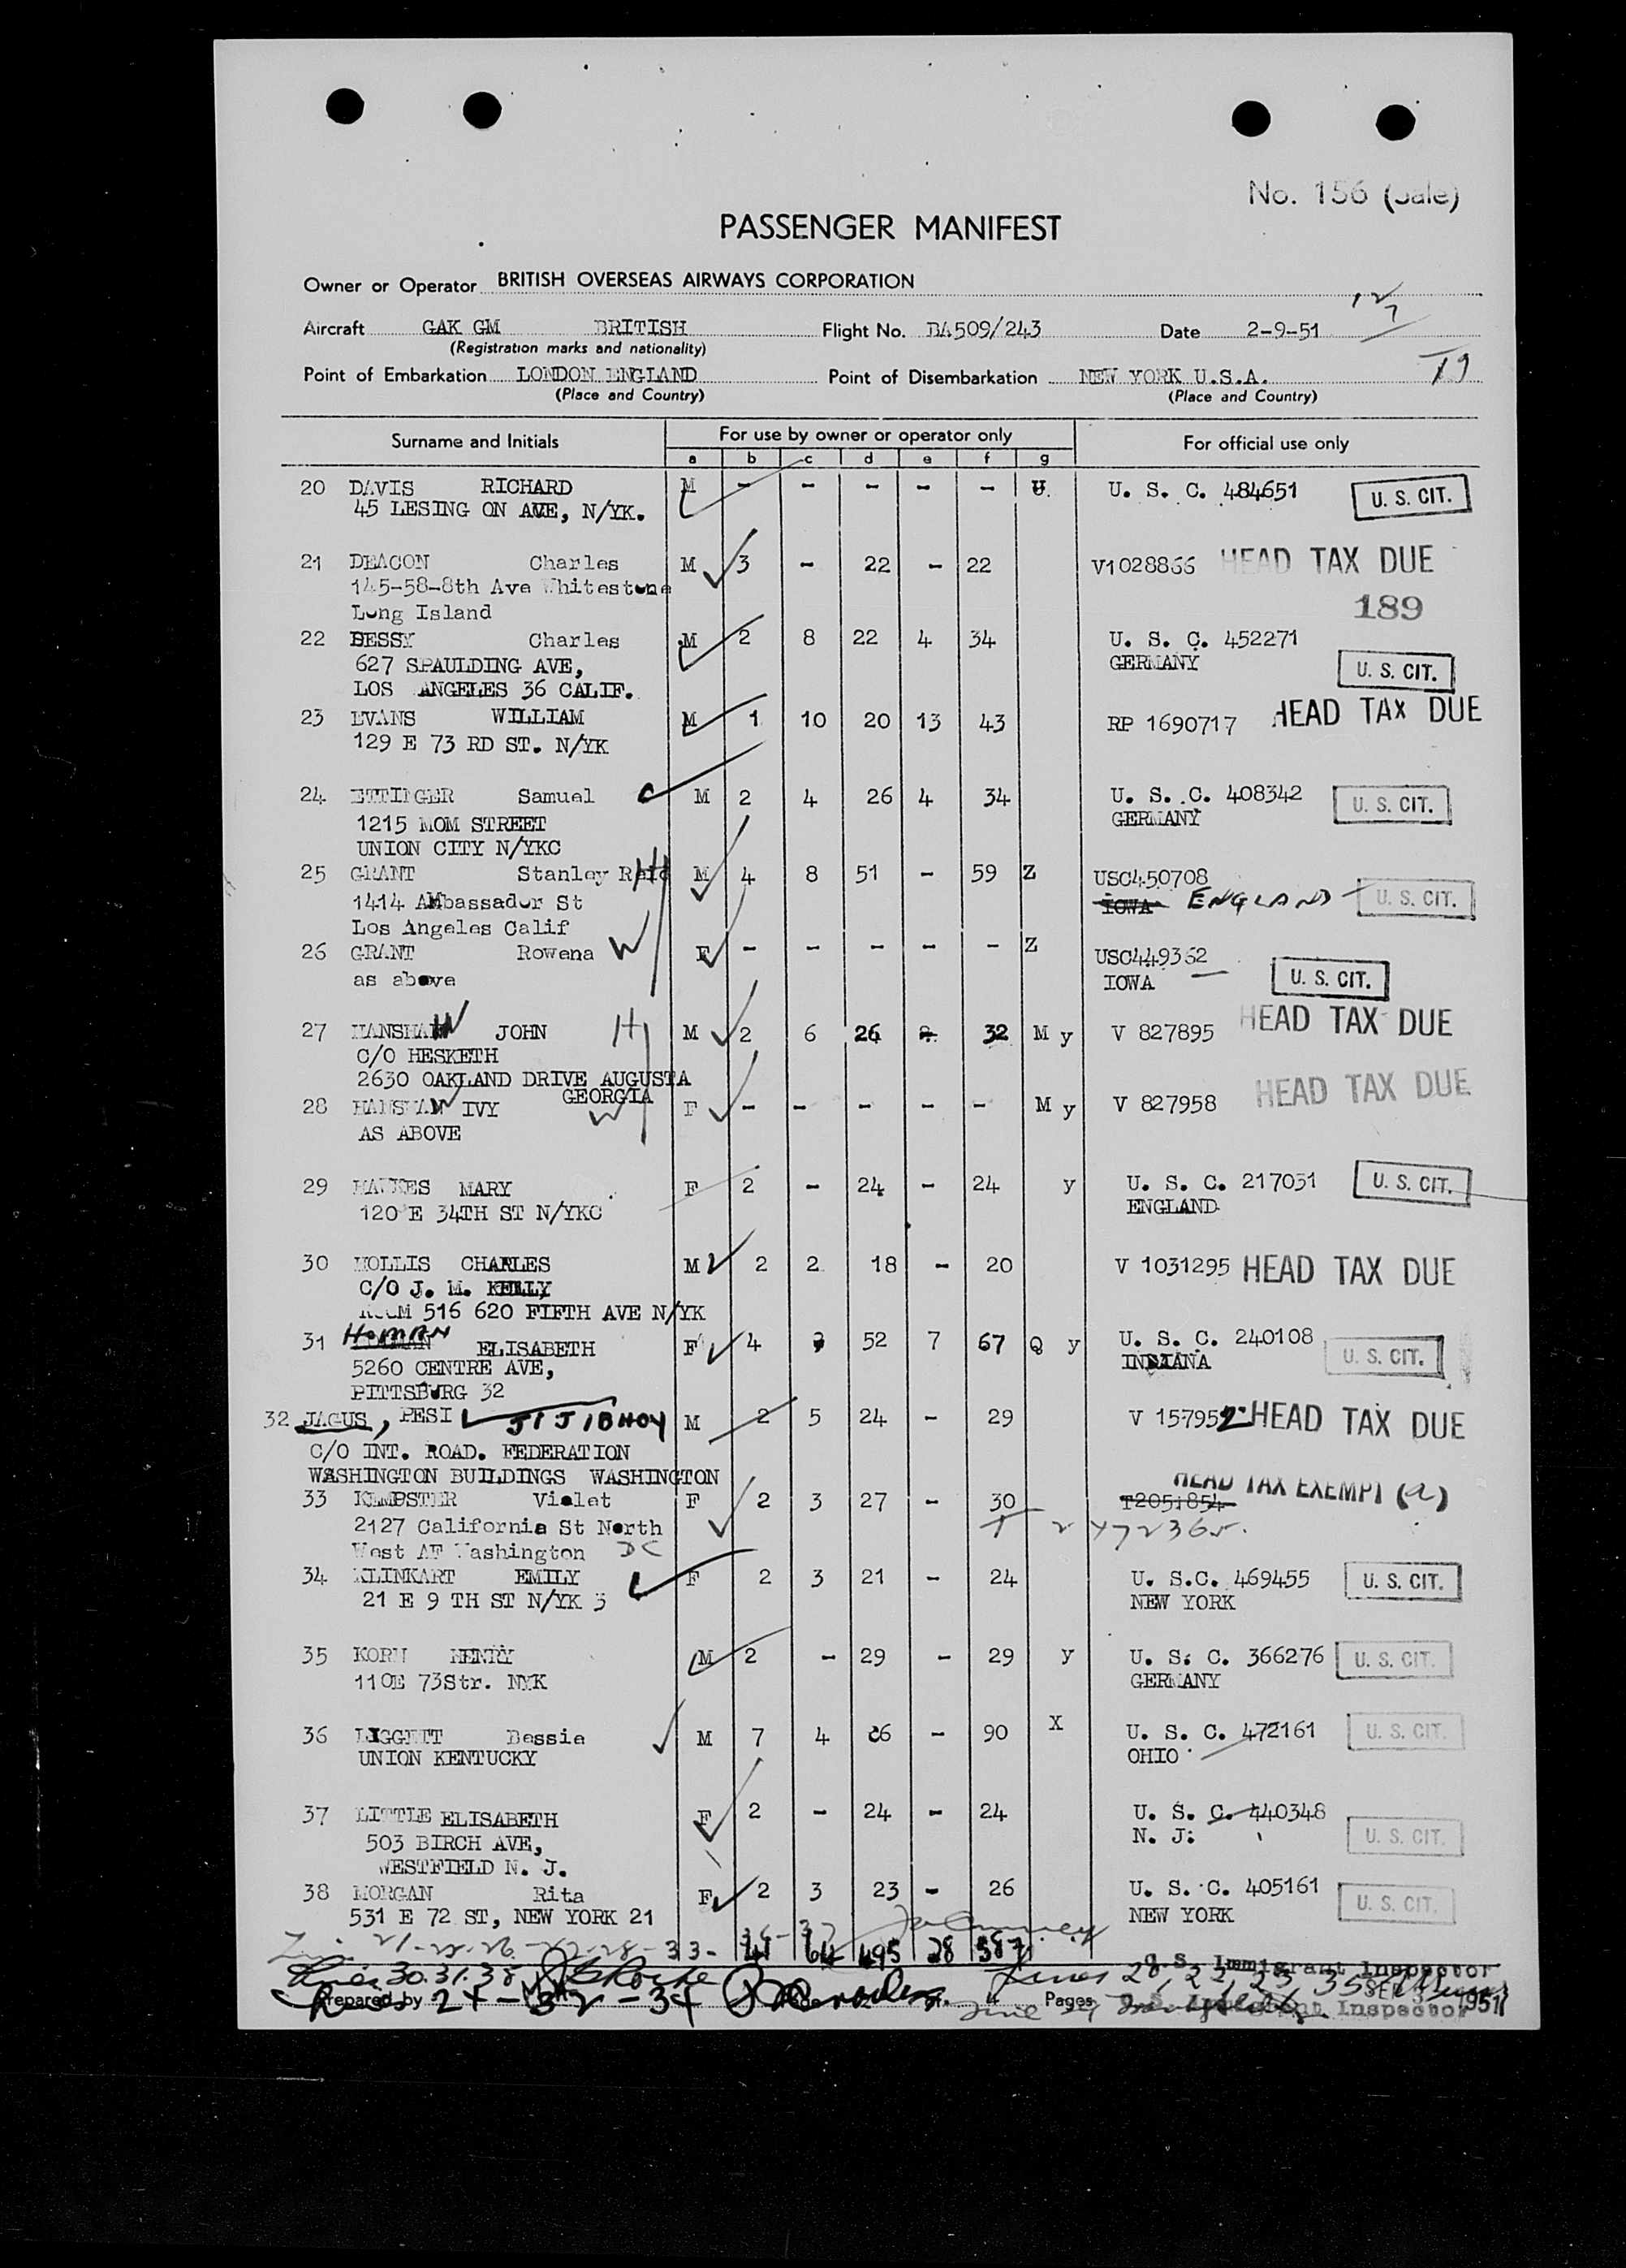 No. 156 (Sale)
PASSENGER MANIFEST
Owner or Operator BRITISH OVERSEAS AIRWAYS CORPORATION
Aircraft GAK GM BRITISH Flight No. BA509/243 Date 2-9-51
(Registration marks and nationality)
Point of Embarkation LONDON ENGLAND Point of Disembarkation NEW YORK U.S.A. 19
(Place and Country) (Place and Country)
Surname and Initials For use by owner or operator only For official use only
a b c d e f g
20 DAVIS RICHARD M - - - - - U. U. S. C. 484651 U. S. CIT.
45 LESING ON AVE, N/YK.
21 DEACON Charles M 3 - 22 - 22 V1028866 HEAD TAX DUE
145-58-8th Ave Whitestone
Long Island 189
22 BESSY Charles M 2 8 22 4 34 U. S. C. 452271
627 SPAULDING AVE, GERMANY U. S. CIT.
LOS ANGELES 36 CALIF.
23 EVANS WILLIAM M 1 10 20 13 43 RP 1690717 HEAD TAX DUE
129 E 73 RD ST. N/YK
24 ETTINGER Samuel M 2 4 26 4 34 U. S. C. 408342 U. S. CIT.
1215 MOM STREET GERMANY
UNION CITY N/YKC
25 GRANT Stanley Reid H M 4 8 51 - 59 Z USC450708
1414 AMbassador St IOWA ENGLAND U. S. CIT.
Los Angeles Calif
26 GRANT Rowena W F - - - - - Z USC449362
as above IOWA U. S. CIT.
27 HANSHAW JOHN H M 2 6 26 32 M y V 827895 HEAD TAX DUE
C/O HESKETH
2630 OAKLAND DRIVE AUGUSTA
GEORGIA
28 HANSHAW IVY W F - - - - - M y V 827958 HEAD TAX DUE
AS ABOVE
29 HAWKES MARY F 2 - 24 - 24 y U. S. C. 217031 U. S. CIT.
120 E 34TH ST N/YKC ENGLAND
30 HOLLIS CHARLES M 2 2 18 - 20 V 1031295 HEAD TAX DUE
C/O J. M. KELLY
ROOM 516 620 FIFTH AVE N/YK
31 HOMAN ELISABETH F 4 52 7 67 Q y U. S. C. 240108
5260 CENTRE AVE, INDIANA U. S. CIT.
PITTSBURG 32
32 JAGUS, PESI JIJIBHOY M 2 5 24 - 29 V 157952 HEAD TAX DUE
C/O INT. ROAD. FEDERATION
WASHINGTON BUILDINGS WASHINGTON
HEAD TAX EXEMPT (a)
33 KEMPSTER Violet F 2 3 27 - 30 T2051854
2127 California St North
West AF Washington DC
34 KLINKART EMILY F 2 3 21 - 24 U. S.C. 469455 U. S. CIT.
21 E 9 TH ST N/YK 3 NEW YORK
35 KORN HENRY M 2 - 29 - 29 y U. S. C. 366276 U. S. CIT.
110E 73Str. NYK GERMANY
36 LIGGETT Bessie M 7 4 - 90 X U. S. C. 472161 U. S. CIT.
UNION KENTUCKY OHIO
37 LITTLE ELISABETH F 2 - 24 - 24 U. S. C. 440348
503 BIRCH AVE, N. J. U. S. CIT.
WESTFIELD N. J.
38 MORGAN Rita F 2 3 23 - 26 U. S. C. 405161
531 E 72 ST, NEW YORK 21 NEW YORK U. S. CIT.
41 64 495 28 587
U. S. Immigrant Inspector
Lines 30.31.38
Prepared by 24-32-34 Pages
U. S. Immigrant Inspector 1951